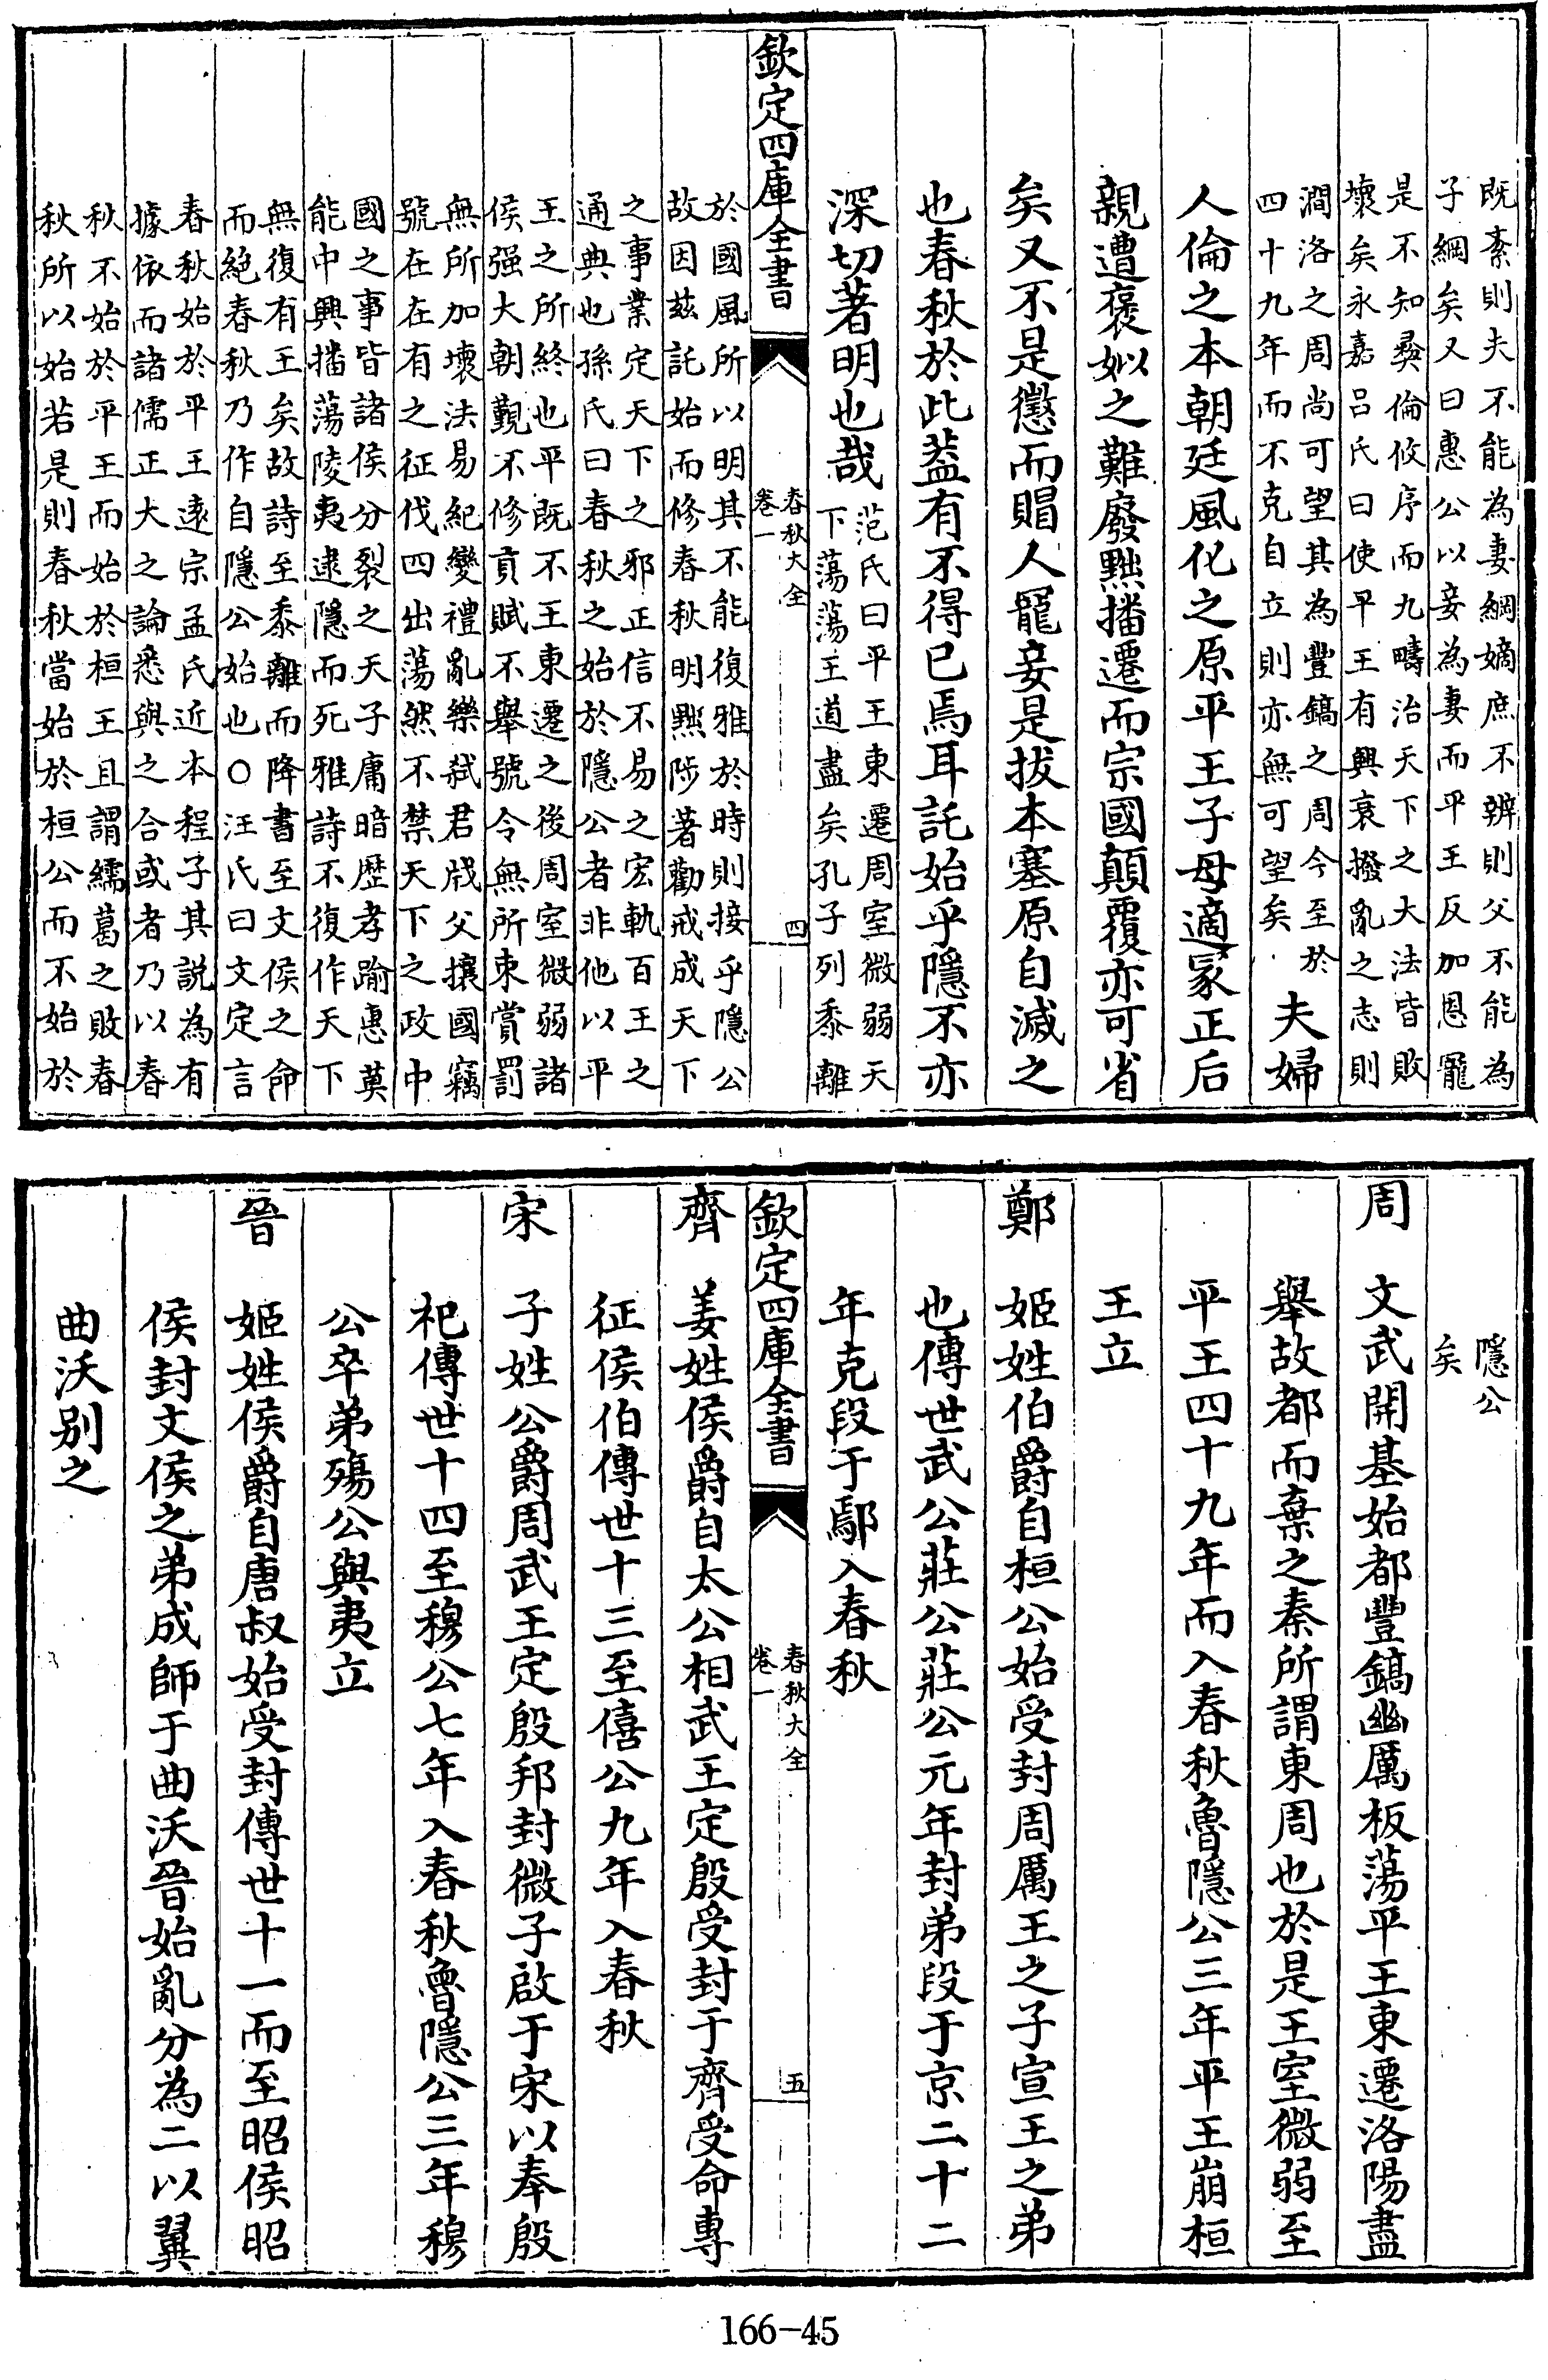 既紊則夫不能為妻綱嫡庶不辨則父不能為
子綱矣又曰惠公以妾為妻而平王反加恩寵
是不知彜倫攸序而九疇治天下之大法皆敗
壞矣永嘉吕氏曰使平王有興衰撥亂之志則
澗洛之周尚可望其為豐鎬之周今至於
四十九年而不克自立則亦無可望矣
夫婦
人倫之本朝廷風化之原平王子母適冢正后
親遭褒姒之難廢黜播遷而宗國顛覆亦可省
矣又不是懲而賵人寵妾是拔本塞原自滅之
也春秋於此葢有不得已焉耳託始乎隱不亦
深切著明也哉
范氏曰平王東遷周室微弱天
下蕩蕩王道盡矣孔子列黍離
欽定四庫全書
春秋大全
卷一
四
於國風所以明其不能復雅於時則接乎隱公
故因兹託始而修春秋明黜陟著勸戒成天下
之事業定天下之邪正信不易之宏軌百王之
通典也孫氏曰春秋之始於隱公者非他以平
王之所終也平既不王東遷之後周室微弱諸
侯强大朝覲不修貢賦不舉號令無所束賞罰
無所加壞法易紀變禮亂樂弑君戕父攘國竊
號在在有之征伐四出蕩然不禁天下之政中
國之事皆諸侯分裂之天子庸暗歷孝踰惠莫
能中興播蕩陵夷逮隱而死雅詩不復作天下
無復有王矣故詩至黍離而降書至文侯之命
而絶春秋乃作自隱公始也○汪氏曰文定言
春秋始於平王遠宗孟氏近本程子其説為有
據依而諸儒正大之論悉與之合或者乃以春
秋不始於平王而始於桓王且謂繻葛之敗春
秋所以始若是則春秋當始於桓公而不始於
隱公
矣
周
文武開基始都豐鎬幽厲板蕩平王東遷洛陽盡
舉故都而棄之秦所謂東周也於是王室微弱至
平王四十九年而入春秋魯隱公三年平王崩桓
王立
鄭
姬姓伯爵自桓公始受封周厲王之子宣王之弟
也傳世武公莊公莊公元年封弟段于京二十二
年克段于鄢入春秋
欽定四庫全書
春秋大全
卷一
五
齊
姜姓侯爵自太公相武王定殷受封于齊受命專
征侯伯傳世十三至僖公九年入春秋
宋
子姓公爵周武王定殷邦封微子啟于宋以奉殷
祀傳世十四至穆公七年入春秋魯隱公三年穆
公卒弟殤公與夷立
晉
姬姓侯爵自唐叔始受封傳世十一而至昭侯昭
侯封文侯之弟成師于曲沃晉始亂分為二以翼
曲沃别之
166-45